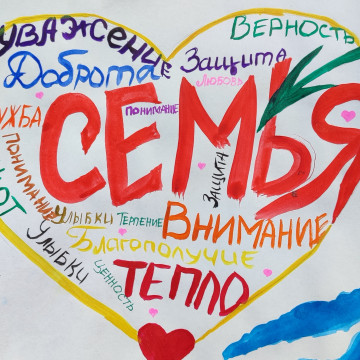 Уважение
Верность
Доброта
Защита
Любовь
Понимание
СЕМЬЯ
Понимание
Защита
Улыбки
Терпение
Внимание
Улыбки
Благополучие
Ценность
Тепло